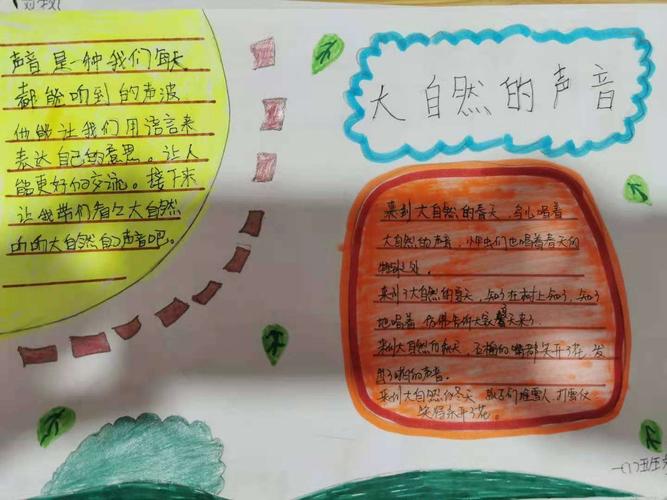 声音是一种我们每天
都能听到的声波
他能让我们用语言来
表达自己的意思。让人
能更好的交流。接下来
让我带们看看大自然
听听大自然的声音吧。
大自然的声音
来到大自然的春天，鸟儿唱着
大自然的声音，们也唱着春天的
来到了大自然的夏天，知了在树上知了，知了
地唱着，仿佛告诉大家夏天来了。
来到大自然的秋天，石榴的嘴都笑开了花，发
的声音。
来到大自然的冬天，孩子们堆雪人，打雪仗
笑得乐开了花。